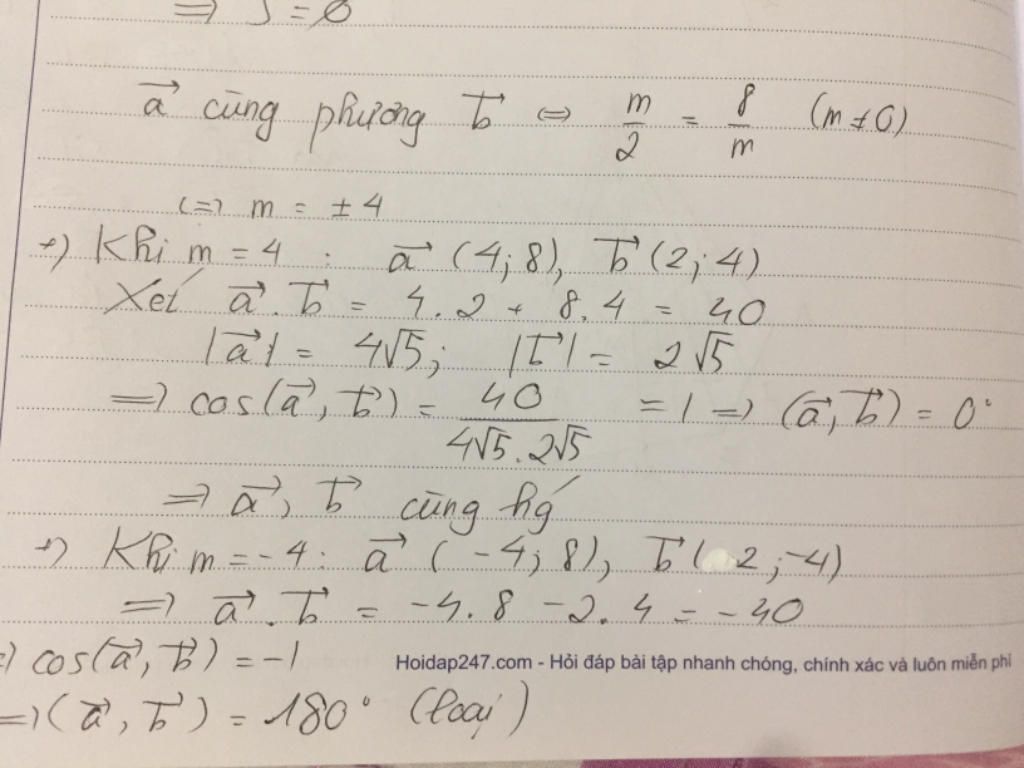 => S = Ø
a⃗ cùng phương b⃗ <=> m/2 = 8/m (m ≠ 0)
<=> m = ± 4
+) Khi m = 4 : a⃗ (4; 8), b⃗ (2; 4)
Xét a⃗ . b⃗ = 4. 2 + 8. 4 = 40
|a⃗| = 4√5; |b⃗| = 2√5
=> cos(a⃗, b⃗) = 40/(4√5 . 2√5) = 1 => (a⃗, b⃗) = 0°
=> a⃗, b⃗ cùng hg
+) Khi m = -4 : a⃗ ( -4; 8), b⃗ ( 2 ; -4)
=> a⃗ . b⃗ = -4. 8 - 2. 4 = -40
=> cos(a⃗, b⃗) = -1
Hoidap247.com - Hỏi đáp bài tập nhanh chóng, chính xác và luôn miễn phí
=> (a⃗, b⃗) = 180° (loại)